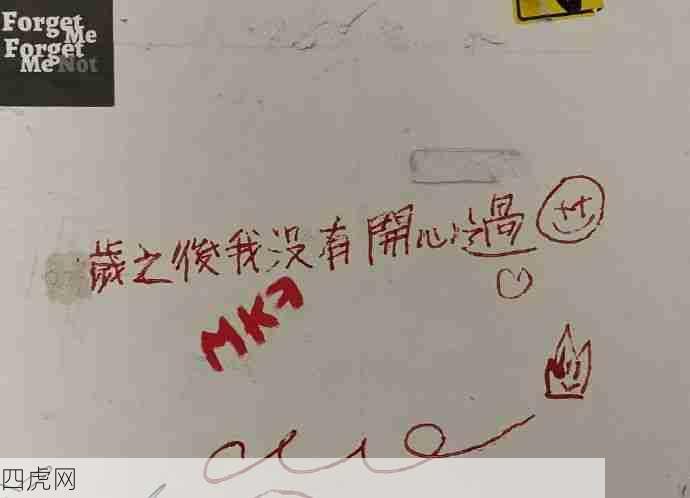 Forget
Me
Forget
Me Not
歲之後我没有開心過
MK
四虎网